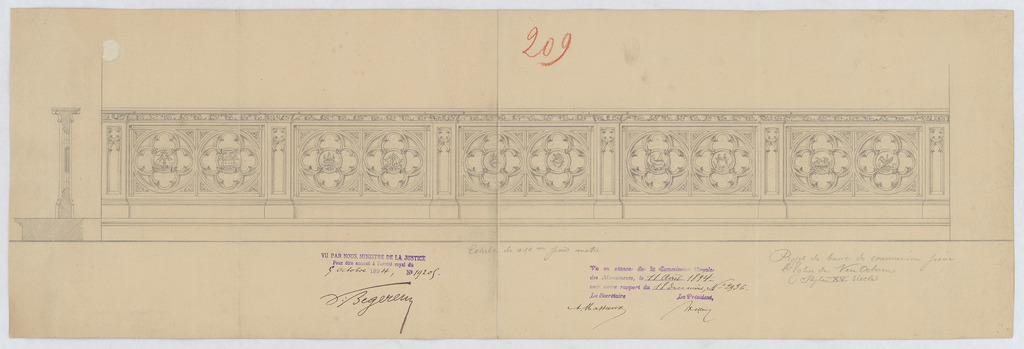 209
Echelle de 0.10 cm pour mètre
VU PAR NOUS, MINISTRE DE LA JUSTICE
Pour être annexé à l'arrêté royal du
5 octobre 1894, N° 19205.
V. Begerem
Vu en séance de la Commission Royale
des Monuments, le 11 Août 1894.
son notre rapport du 11 dece mois, N°
Le Secrétaire Le Président,
A. Massaux
Projet de banc de communion pour
l'église de
Style XVe siècle